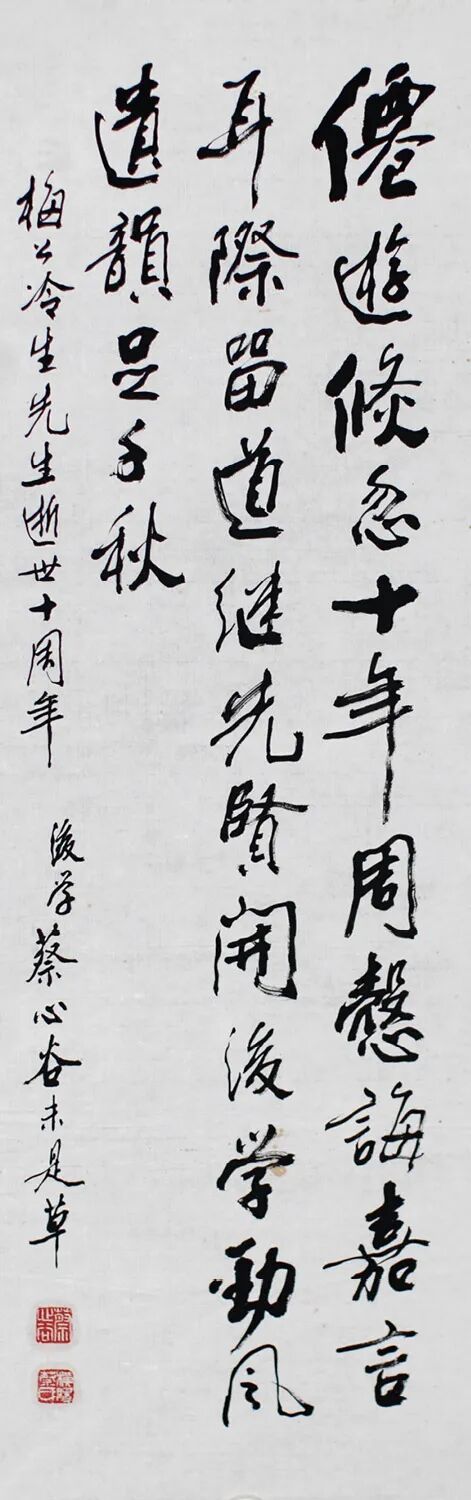 僊遊倏忽十年周慇誨嘉言
耳際留道继先賢開後学勁風
遺韻足千秋
梅公冷生先生逝世十周年
後学蔡心谷未是草